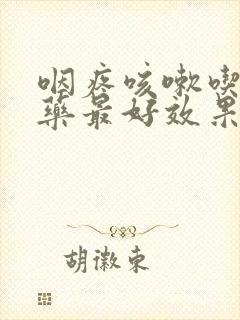 咽疼咳嗽喫
藥最好效果
胡徽東